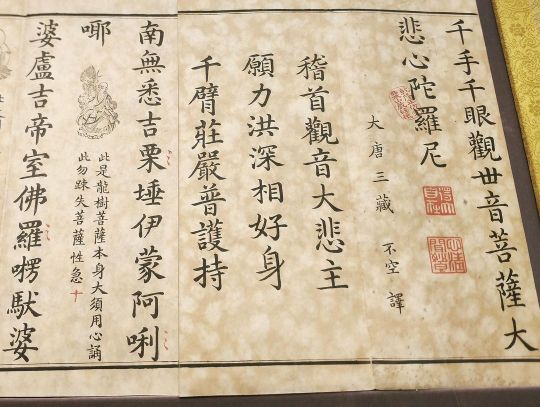 千手千眼觀世音菩薩大
悲心陀羅尼
大唐三藏 不空 譯
稽首觀音大悲主
願力洪深相好身
千臂莊嚴普護持
南無悉吉栗埵伊蒙阿唎
耶
此是龍樹菩薩本身大須用心誦
此勿疎失菩薩性急
十
婆盧吉帝室佛羅㘄馱婆